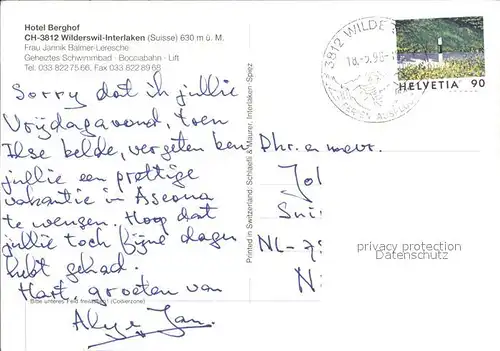 Hotel Berghof
CH-3812 Wilderswil-Interlaken (Suisse) 630 m ü. M.
Frau Jannik Balmer-Leresche
Geheiztes Schwimmbad · Bocciabahn · Lift
Tel. 033 822 75 66, Fax 033 822 89 68
3812 WILDE
18.-5.98-
HELVETIA 90
Sorry dat ik jullie
Vrijdagavond, toen
Ilse belde, vergeten ben
jullie een prettige
vakantie in Ascona
te wensen. Hoop dat
jullie toch fijne dagen
hebt gehad.
Hart. groeten van
Jan.
Bitte unteres Feld freilassen! (Codierzone)
Printed in Switzerland: Schlaefli & Maurer, Interlaken-Spiez
Dhr. en mevr.
Jo
Sui
NL-7
N
privacy protection
Datenschutz